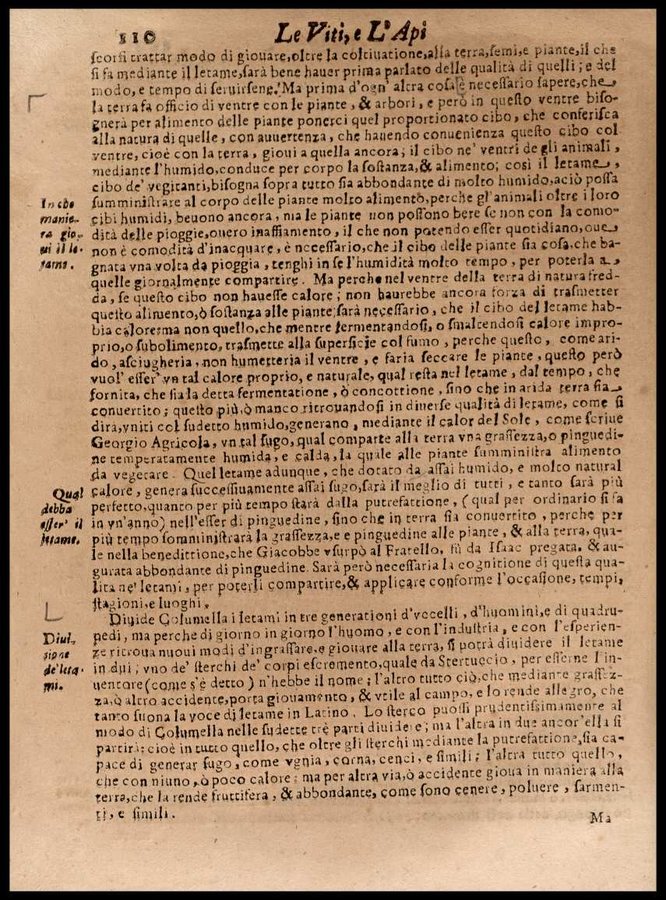 110 Le Viti, e L'Api
scorsi trattar modo di giovare, oltre la coltivatione, alla terra, semi, e piante, il che
si fa mediante il letame, sarà bene hauer prima parlato delle qualità di quelli; e del
modo, e tempo di seruirsene. Ma prima d'ogn' altra cosa è necessario sapere, che
la terra fa officio di ventre con le piante, & arbori, e però in questo ventre biso-
gnerà per alimento delle piante ponerci quel proportionato cibo, che conferisca
alla natura di quelle, con auuertenza, che hauendo conuenienza questo cibo col
ventre, cioè con la terra, gioui a quella ancora; il cibo ne' ventri degli animali,
mediante l'humido, conduce per corpo la sostanza, & alimento; così il letame,
cibo de' vegitanti, bisogna sopra tutto sia abbondante di molto humido, aciò possa
In che
sumministrare al corpo delle piante molto alimento, perche gl'animali oltre i loro
manie-
cibi humidi, beuono ancora, ma le piante non possono bere se non con la como-
ra gio-
dità delle pioggie, ouero inaffiamento, il che non potendo esser quotidiano, oue
ui il le-
non è comodità d'inacquare, è necessario, che il cibo delle piante sia cosa, che ba-
tame.
gnata vna volta da pioggia, tenghi in se l'humidità molto tempo, per poterla a
quelle giornalmente compartire. Ma perche nel ventre della terra di natura fred-
da, se questo cibo non hauesse calore; non haurebbe ancora forza di trasmetter
questo alimento, ò sostanza alle piante; sarà necessario, che il cibo del letame hab-
bia calore: ma non quello, che mentre fermentandosi, o smalcendosi calore impro-
prio, o subolimento, trasmette alla superficie col fumo, perche questo, come ari-
do, asciugheria, non humetteria il ventre, e faria seccare le piante, questo però
vuol' esser' vn tal calore proprio, e naturale, qual resta nel letame, dal tempo, che
fornita, che sia la detta fermentatione, ò concottione, sino che in arida terra sia
conuertito; questo più, ò manco ritrouandosi in diuerse qualità di letame, come si
dirà, vniti col sudetto humido, generano, mediante il calor del Sole, come scriue
Georgio Agricola, vn tal sugo, qual comparte alla terra vna grassezza, o pinguedi-
ne temperatamente humida, e calda, la quale alle piante sumministra alimento
da vegetare. Quel letame adunque, che dotato da assai humido, e molto natural
Qual
calore, genera successiuamente assai sugo, sarà il meglio di tutti, e tanto sarà più
debba
perfetto, quanto per più tempo starà dalla putrefattione, (qual per ordinario si fa
esser' il
in vn'anno) nell'esser di pinguedine, sino che in terra sia conuertito, perche per
letame.
più tempo somministrarà la grassezza, e pinguedine alle piante, & alla terra, qua-
le nella benedittione, che Giacobbe vsurpò al Fratello, fù da Isaac pregata, & au-
gurata abbondante di pinguedine. Sarà però necessaria la cognitione di questa qua-
lità ne' letami, per poterli compartire, & applicare conforme l'occasione, tempi,
stagioni, e luoghi.
Diuide Columella i letami in tre generationi d'vccelli, d'huomini, e di quadru-
Diui-
pedi, ma perche di giorno in giorno l'huomo, e con l'industria, e con l'esperien-
sione
ze ritroua nuoui modi d'ingrassare, e giouare alla terra, si potrà diuidere il letame
de' leta-
in dui; vno de' sterchi de' corpi escremento, quale da Stertuccio, per esserne l'in-
mi.
uentore (come s'è detto) n'hebbe il nome; l'altro tutto ciò, che mediante grassez-
za, ò altro accidente, porta giouamento, & vtile al campo, e lo rende allegro, che
tanto suona la voce di letame in Latino. Lo sterco puossi prudentissimamente al
modo di Columella nelle sudette trè parti diuidere; ma l'altra in due ancor'ella si
partirà: cioè in tutto quello, che oltre gli sterchi mediante la putrefattione, sia ca-
pace di generar sugo, come vgnia, corna, cenci, e simili; l'altra tutto quello,
che con niuno, ò poco calore; ma per altra via, ò accidente gioua in maniera alla
terra, che la rende fruttifera, & abbondante, come sono cenere, poluere, sarmen-
ti, e simili.
Ma